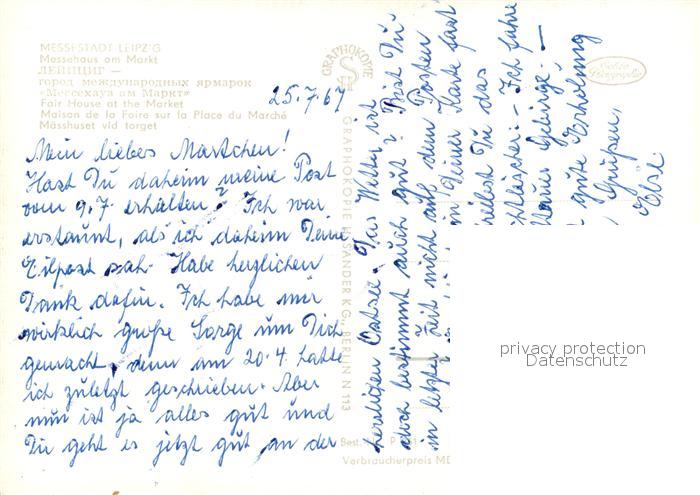 MESSESTADT LEIPZIG
Messehaus am Markt
ЛЕЙПЦИГ —
город международных ярмарок
«Мессехауз ам Маркт»
Fair House at the Market
Maison de la Foire sur la Place du Marché
Mässhuset vid torget
25.7.67
Mein liebes Martchen!
Hast Du daheim meine Post
vom 9.7 erhalten? Ich war
erstaunt, als ich daheim Deine
Eilpost sah. Habe herzlichen
Dank dafür. Ich habe mir
wirklich große Sorge um Dich
gemacht, denn am 20.4. hatte
ich zuletzt geschrieben. Aber
nun ist ja alles gut und
Dir geht es jetzt gut an der
herrlichen Ostsee. Das Wetter ist
doch bestimmt auch gut? Bist Du
in letzter Zeit nicht auf dem Posten
in Deiner Karte fast
reibst Du das
Ich fahre
Gebirge. —
gute Erholung
Grüßen,
Else
GRAPHOKOPIE
GRAPHOKOPIE H. SANDER K G., BERLIN N 113
Best.
Verbraucherpreis MD
privacy protection
Datenschutz